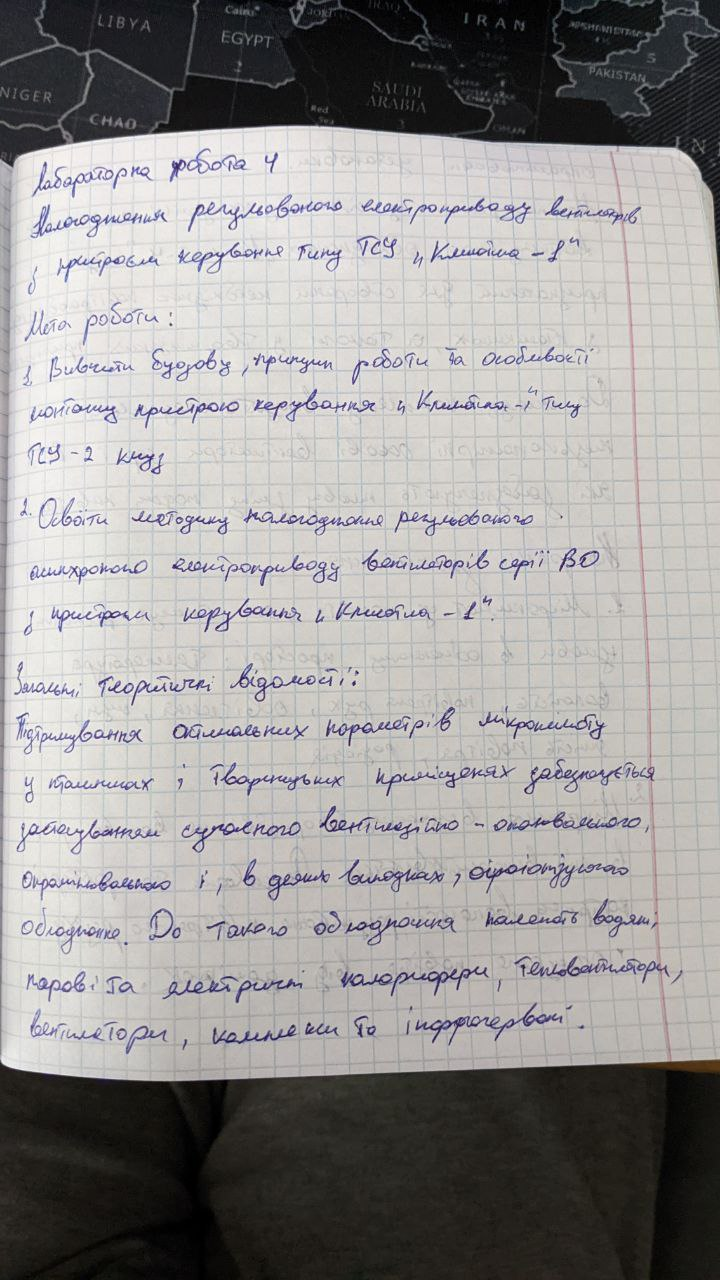 LIBYA
Cairo
EGYPT
IRAQ
IRAN
AFGHANISTAN
PAKISTAN
SAUDI
ARABIA
Red
Sea
OMAN
NIGER
CHAD
IN
Лабораторна робота 4
Налагодження регульованого електроприводу вентиляторів
з пристроєм керування типу ТСУ „Кліматика – 1"
Мета роботи:
1. Вивчити будову, принцип роботи та особливості
монтажу пристрою керування „Кліматика -1" типу
ТСУ - 2
2. Освоїти методику налагодження регульованого
асинхроного електроприводу вентиляторів серії ВО
з пристроєм керування „Кліматика – 1".
Загальні теоритичні відомості:
Підтримування оптимальних параметрів мікроклімату
у пташниках і твариницьких приміщенях забезпечується
застосуванням сучасного вентиляційно - опалювального,
опромінювального і, в деяких випадках, аіроіонізуючого
обладнання. До такого обладнання належать водяні,
парові та електричні калорифери, тепловентилятори,
вентилятори, комплекти та інфрачервоні.